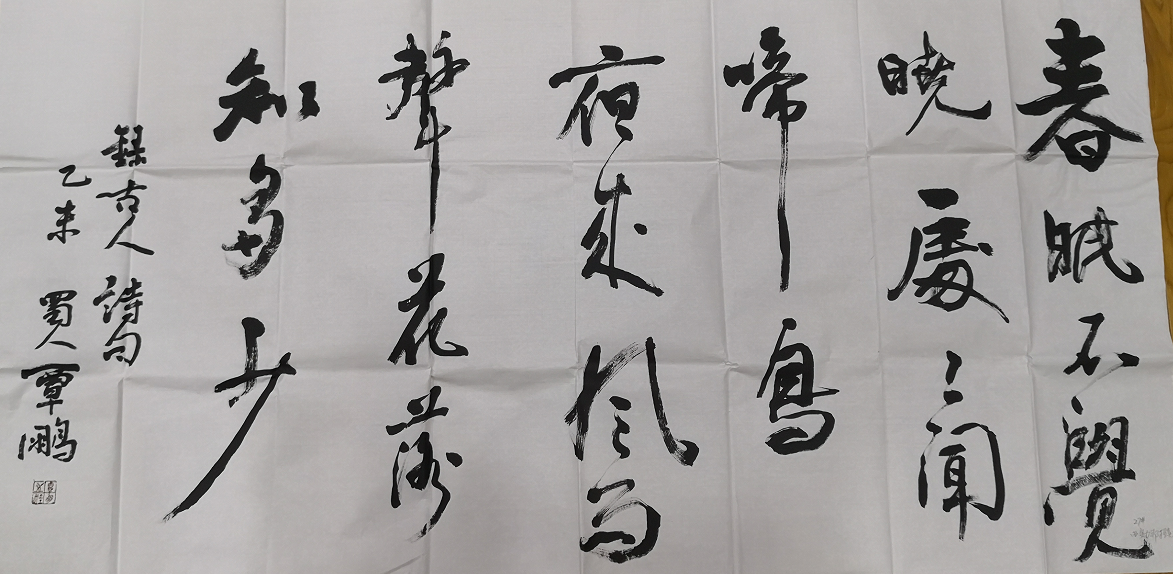 春眠不覺
曉處〻聞
啼鳥
夜來風雨
聲花落
知多少
錄古人詩句
乙未 蜀人覃鵬